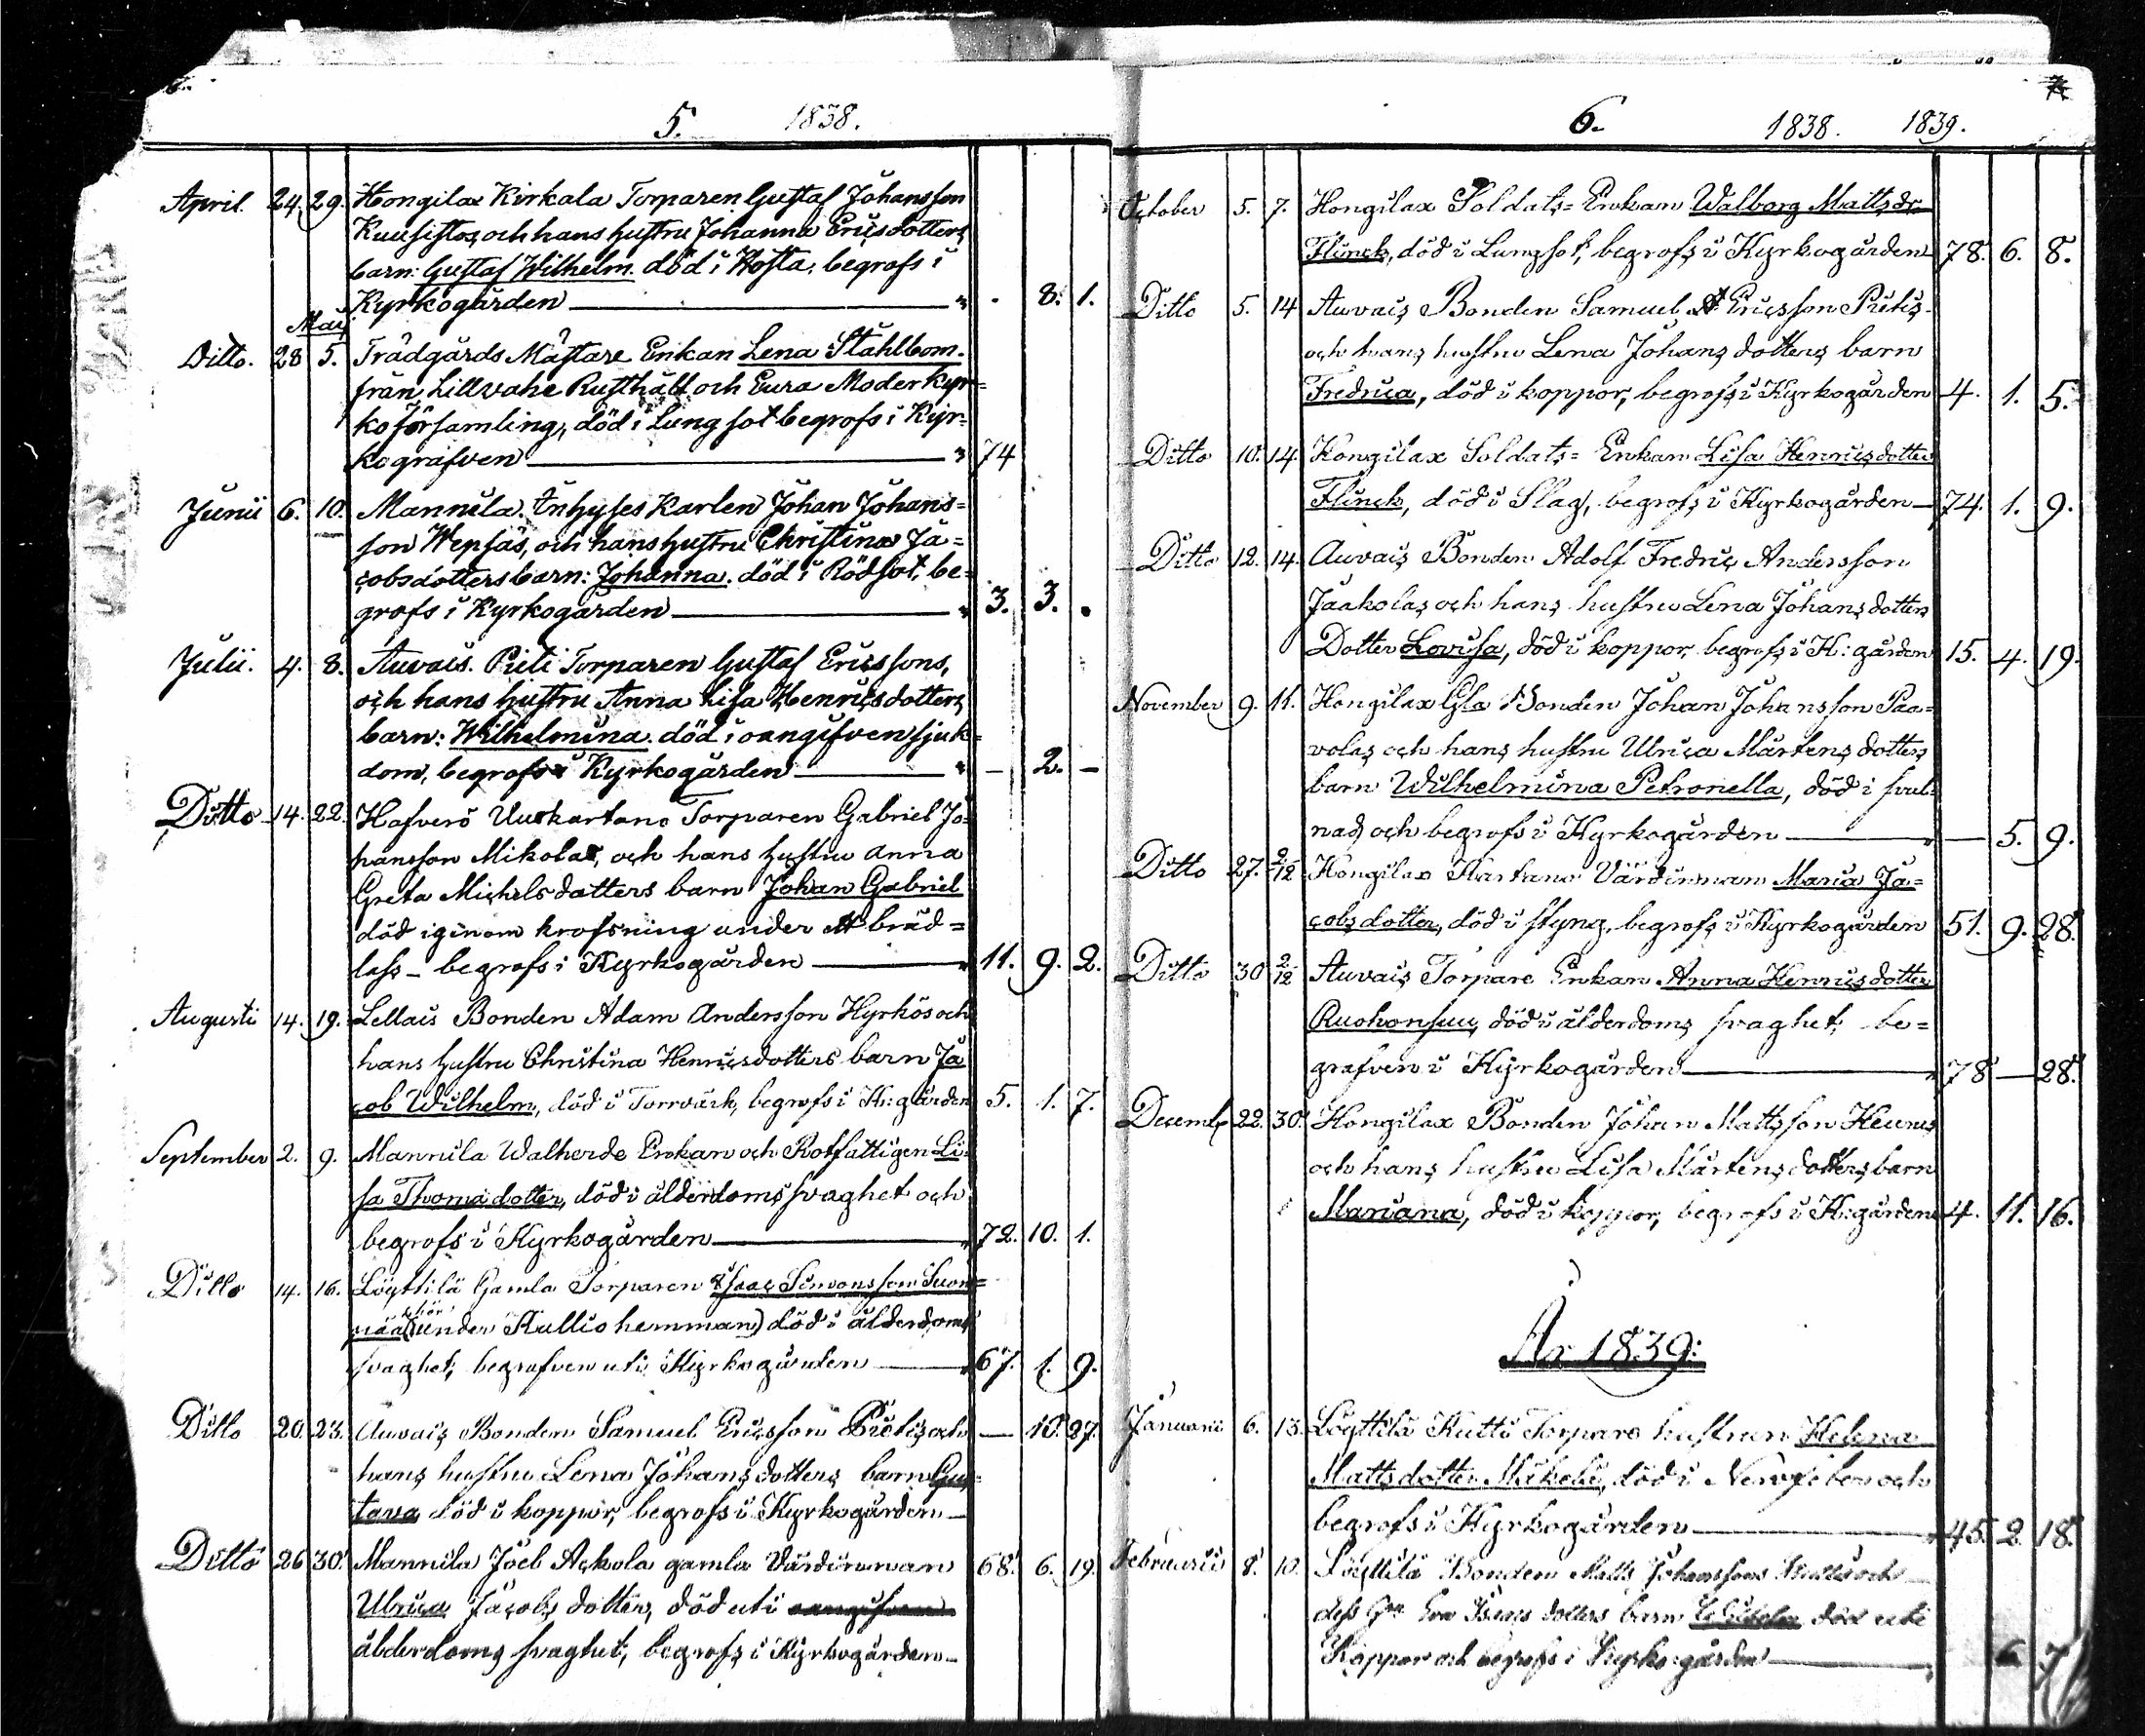 5. 1838.
April. 24. 29. Hongilax Kirkala Torparen Gustaf Johansson
Kuusistos, och hans hustru Johanna Ericsdotters
barn: Gustaf Wilhelm. död i Hosta, begrafs i
Kyrkogården — " . 8. 1.
Maij
Ditto. 28 5. Trädgårds Mästare Enkan Lena Ståhlbom.
från Lillvahe Rusthåll och Eura Moderkyr=
koförsamling, död i Lungsot begrofs i Kyr=
kografven — " 74
Junii 6. 10. Mannila. Inhyses Karlen Johan Johans=
son Wepsäs, och hans hustru Christina Ja=
cobsdotters barn: Johanna. död i Rödsot, be=
grofs i Kyrkogården — " 3. 3. .
Julii. 4. 8. Auvais. Pieti Torparen Gustaf Ericssons,
och hans hustru Anna Lisa Henricsdotters
barn: Wilhelmina. död i oangifven sjuk=
dom, begrofs i Kyrkogården — " — 2. —
Ditto 14. 22. Hafverö Uuskartano Torparen Gabriel Jo=
hansson Mikola, och hans hustru Anna
Greta Michelsdotters barn Johan Gabriel
död iginom krossning under ett bräd=
lass – begrofs i Kyrkogården — 11. 9. 2.
Augusti 14. 19. Lellais Bonden Adam Andersson Hyrkös och
hans hustru Christina Henricsdotters barn Ja
cob Wilhelm, död i Torrvärk, begrofs i K:gården 5. 1. 7.
September 2. 9. Mannila Walherde Enkan och Rotfattigen Li=
sa Thomædotter, död i ålderdoms svaghet och
begrofs i Kyrkogården — " 72. 10. 1.
Ditto 14. 16. Löyttilä Gamla Torparen Isaac Simonsson Suom=
pää (under Kullis hemman) död i ålderdoms
svaghet, begrafven uti Kyrkogården — 67. 1. 9.
Ditto 20. 23. Auvais Bonden Samuel Ericsson Pietis och — 10. 27.
hans hustru Lena Johansdotters barn Gus=
tava död i koppor, begrofs i Kyrkogården —
Ditto 26 30. Mannila Joeb Ackola gamla Värdinnan 68. 6. 19.
Ulrica Jacobsdotter, död uti
ålderdoms svaghet, begrofs i Kyrkogården —
6. 1838. 1839.
October 5. 7. Hongilax Soldats= Enkan Walborg Mattsdr
Flinck, död i Lungsot, begrofs i Kyrkogården 78. 6. 8.
Ditto 5. 14 Auvais Bonden Samuel Ericsson Pietis
och hans hustru Lena Johansdotters barn
Fredrica, död i koppor, begrofs i Kyrkogården 4. 1. 5.
Ditto 10. 14 Hongilax Soldats= Enkan Lisa Henricsdotter
Flinck, död i Slag, begrofs i Kyrkogården — 74. 1. 9.
Ditto 12. 14. Auvais Bonden Adolf Fredric Andersson
Jaakolas och hans hustru Lena Johansdotters
Dotter Lovisa, död i koppor, begrofs i K:gården 15. 4. 19.
November 9. 11. Hongilax Bonden Johan Johansson Paa=
volas och hans hustru Ulrica Mårtensdotters
barn Wilhelmina Petronella, död i svul=
nad och begrofs i Kyrkogården — — 5. 9.
Ditto 27. 2/12 Hongilax Kartano Värdinnan Maria Ja=
cobsdotter, död i styng, begrofs i Kyrkogården 51. 9. 28.
Ditto 30 2/12 Auvais Torpare Enkan Anna Henricsdotter
Ruohonsuu, död i ålderdoms svaghet, be=
grafven i Kyrkogården — 78 — 28.
Decemb 22. 30. Hongilax Bonden Johan Mattsson
och hans hustru Lisa Mårtensdotters barn
Mariana, död i koppor, begrofs i K:gården 4. 11. 16.
År 1839:
Januarii 6. 13. Löyttilä Kutti Torpare hustrun Helena
Mattsdotter Mäkelä, död i Nervfeber och
begrofs i Kyrkogården — 45. 2. 18.
Februarii 8. 10. Löyttilä Bonden Matts Johanssons och
dess Eva dotters barn död uti
Koppor och begrofs i Kyrkogården — 6 7